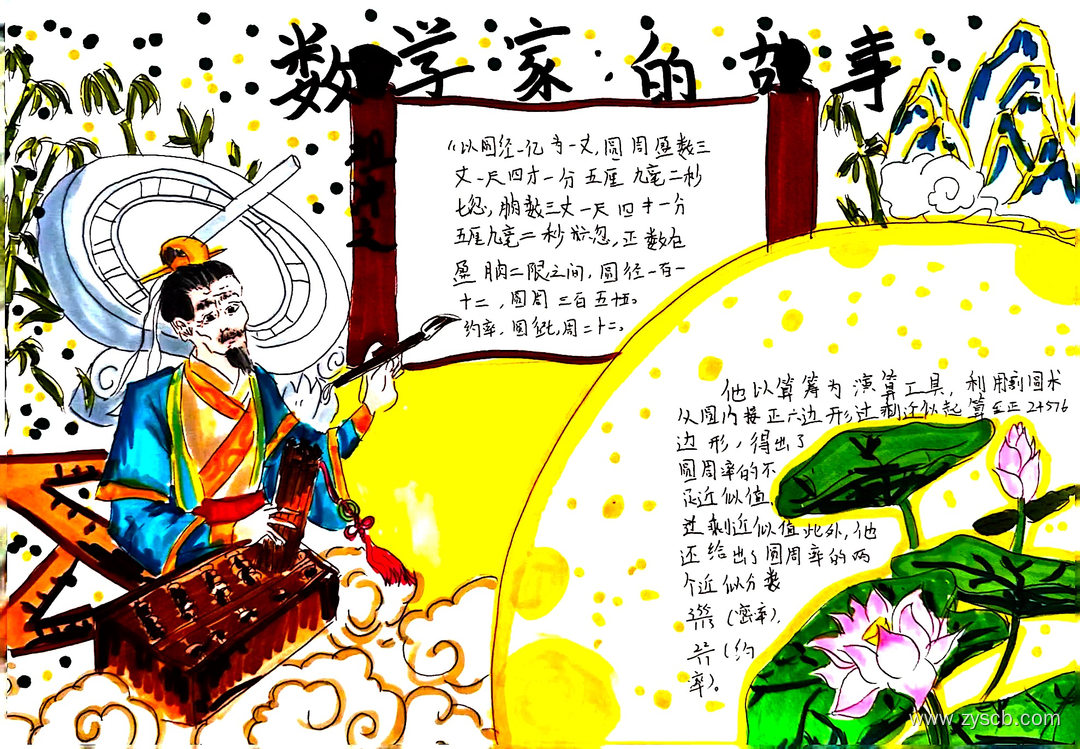 数学家的故事
祖冲之
"以圆径一亿为一丈,圆周盈数三
丈一尺四寸一分五厘九毫二秒
七忽,朒数三丈一尺四寸一分
五厘九毫二秒六忽,正数在
盈朒二限之间,圆径一百一
十三,圆周三百五十五。
约率,圆径七,周二十二。
他以算筹为演算工具,利用割圆术
从圆内接正六边形过剩近似起算至正24576
边形,得出了
圆周率的不
足近似值
过剩近似值此外,他
还给出了圆周率的两
个近似分数
(密率),
(约
率)。
www.zyscb.com